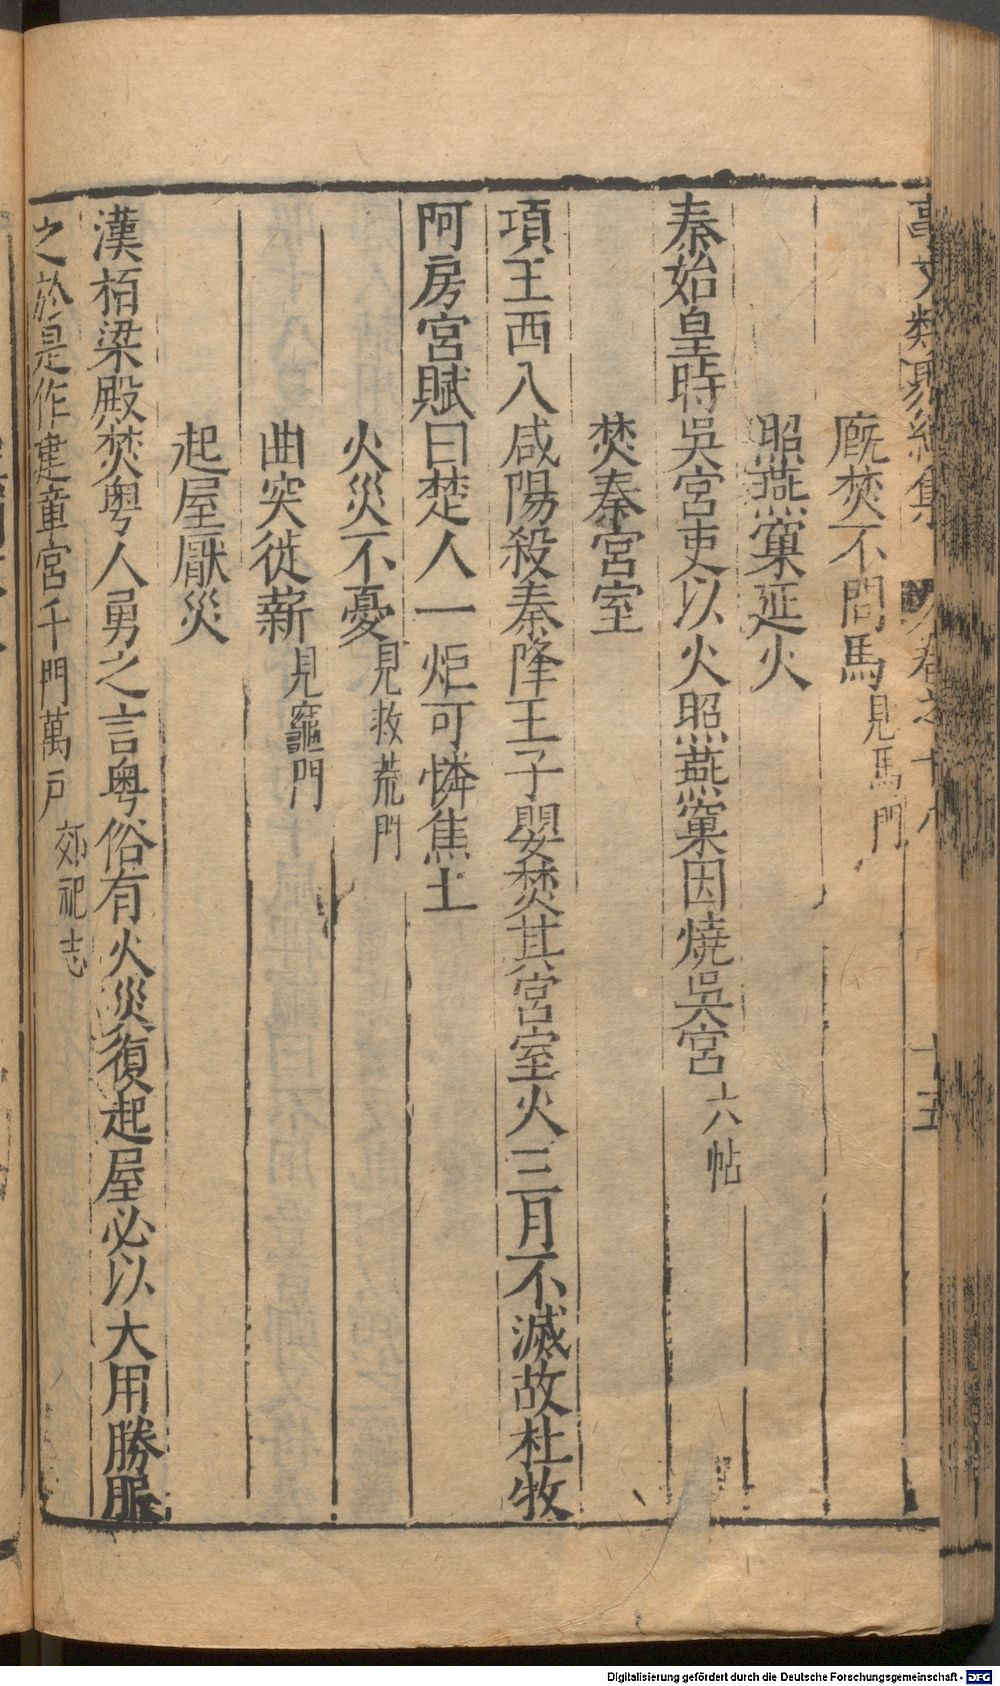 事文類聚續集 卷之十八 十五
廐焚不問馬見馬門
照燕窠延火
秦始皇時吳宮吏以火照燕窠因燒吳宮六帖
焚秦宮室
項王西入咸陽殺秦降王子嬰焚其宮室火三月不滅故杜牧
阿房宮賦曰楚人一炬可憐焦土
火災不憂見救荒門
曲突徙薪見竈門
起屋厭災
漢栢梁殿焚粵人勇之言粵俗有火災復起屋必以大用勝服
之於是作建章宮千門萬戶郊祀志
Digitalisierung gefördert durch die Deutsche Forschungsgemeinschaft - DFG